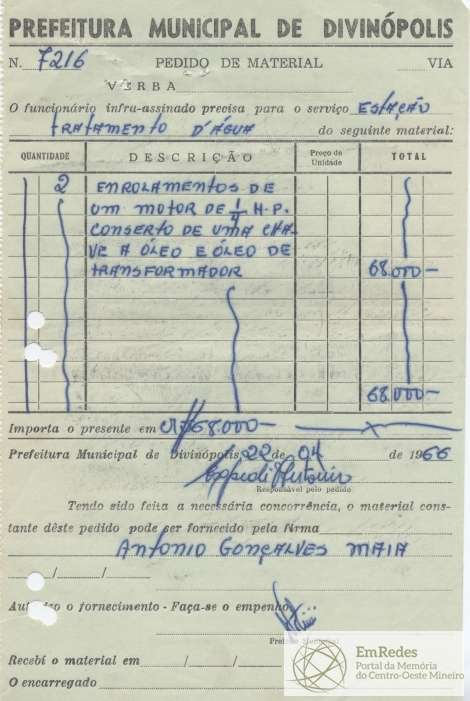 PREFEITURA MUNICIPAL DE DIVINÓPOLIS
N. 7216 PEDIDO DE MATERIAL VIA
VERBA
O funcionário infra-assinado precisa para o serviço ESTAÇÃO
TRATAMENTO D'ÁGUA do seguinte material:
QUANTIDADE DESCRIÇÃO Preço de Unidade TOTAL
2 ENROLAMENTOS DE
UM MOTOR DE 1/4 H.P.
CONSERTO DE UMA CHA
VE A ÓLEO E ÓLEO DE
TRANSFORMADOR 68.000-
68.000-
Importa o presente em CR$68.000-
Prefeitura Municipal de Divinópolis, 22 de 04 de 1966
Responsável pelo pedido
Tendo sido feita a necessária concorrência, o material cons-
tante dêste pedido pode ser fornecido pela firma
ANTONIO GONÇALVES MAIA
/ /
Autorizo o fornecimento - Faça-se o empenho
Prefeito Municipal
Recebí o material em / /
O encarregado
EmRedes
Portal da Memória
do Centro-Oeste Mineiro